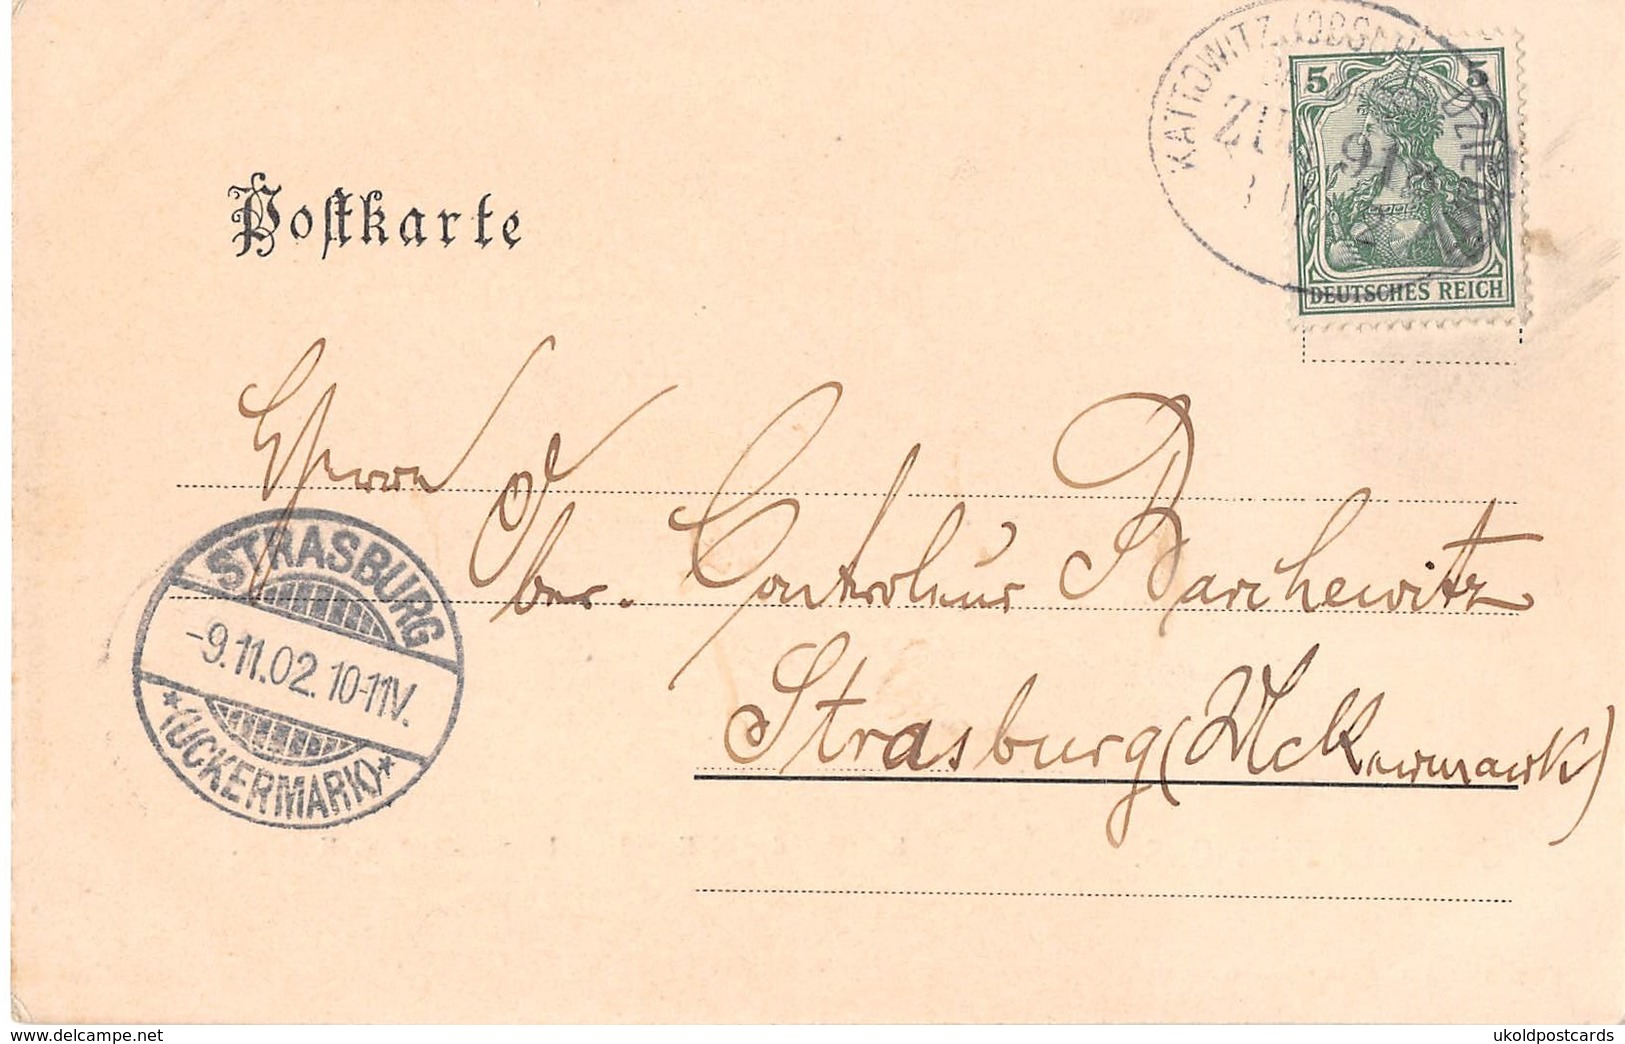 KATTOWITZ (OBSCHL)
ZUG 91
5 5
DEUTSCHES REICH
Postkarte
Herrn
Ober-Controleur Barchewitz
Strasburg (Uckermark)
STRASBURG
-9.11.02. 10-11V.
*(UCKERMARK)*
www.delcampe.net
ukoldpostcards